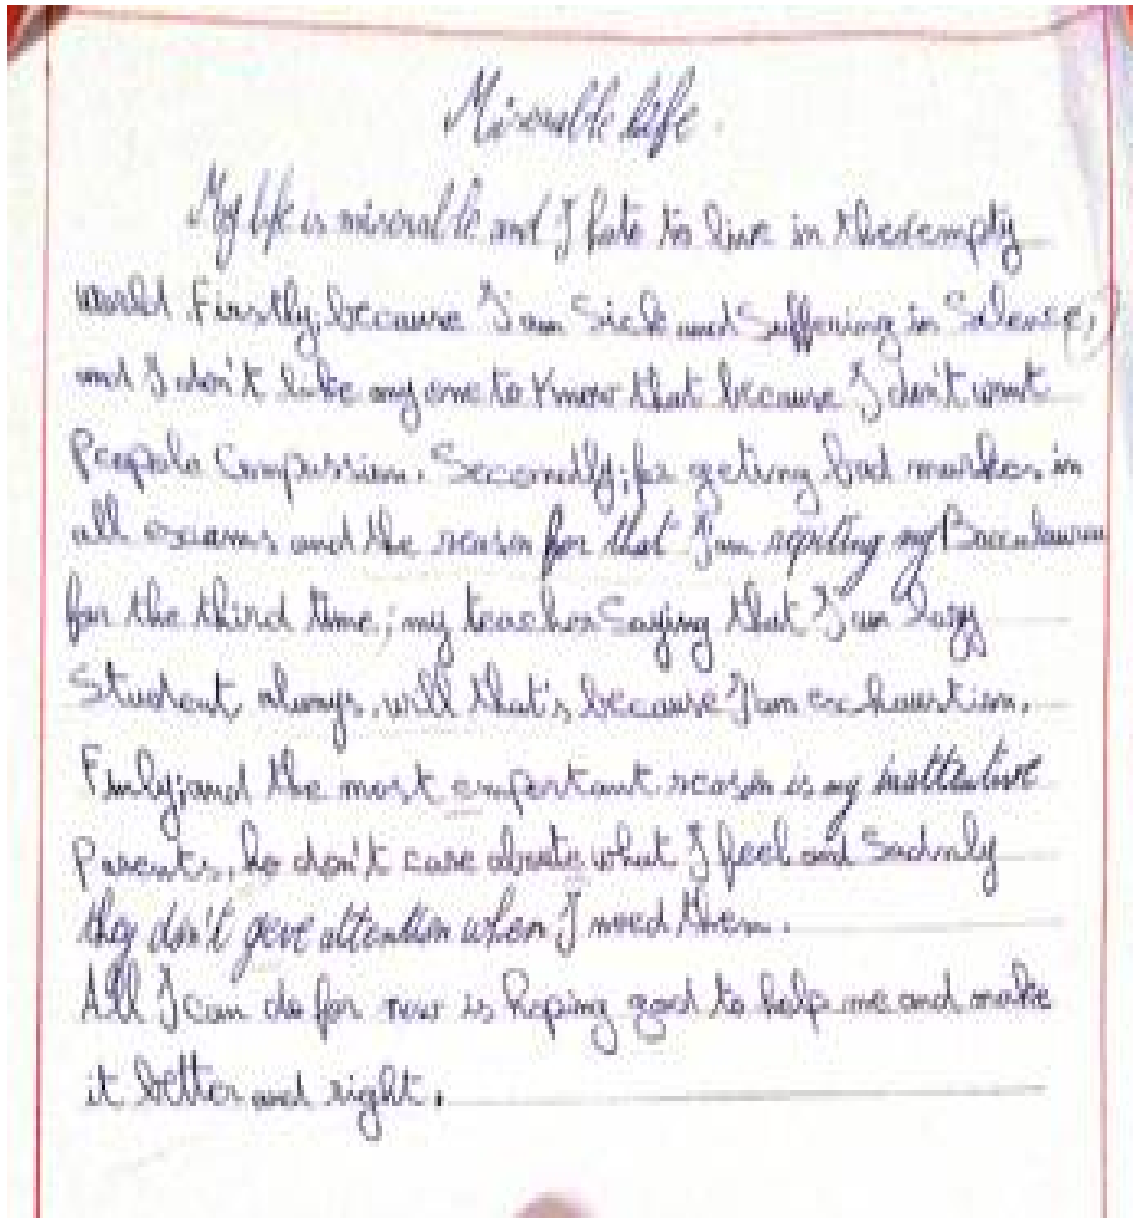 Miserable life.
My life is miserable and I hate to live in the empty
world. Firstly, because I am Sick and Suffering in Salence,
and I don't like any one to know that because I don't want
People Compassion. Secondly; for geting bad markes in
all exams and the reason for that I am repiting my
for the third time; my teacher Saying that I am lazy
Student always, will that's because I am exhaustion.
Finly; and the most emportant reason is my inattentive
Parents, ho don't care aboute what I feel and Sadnly
they don't geve attention when I need them.
All I can do for now is hoping god to help me and make
it better and right.